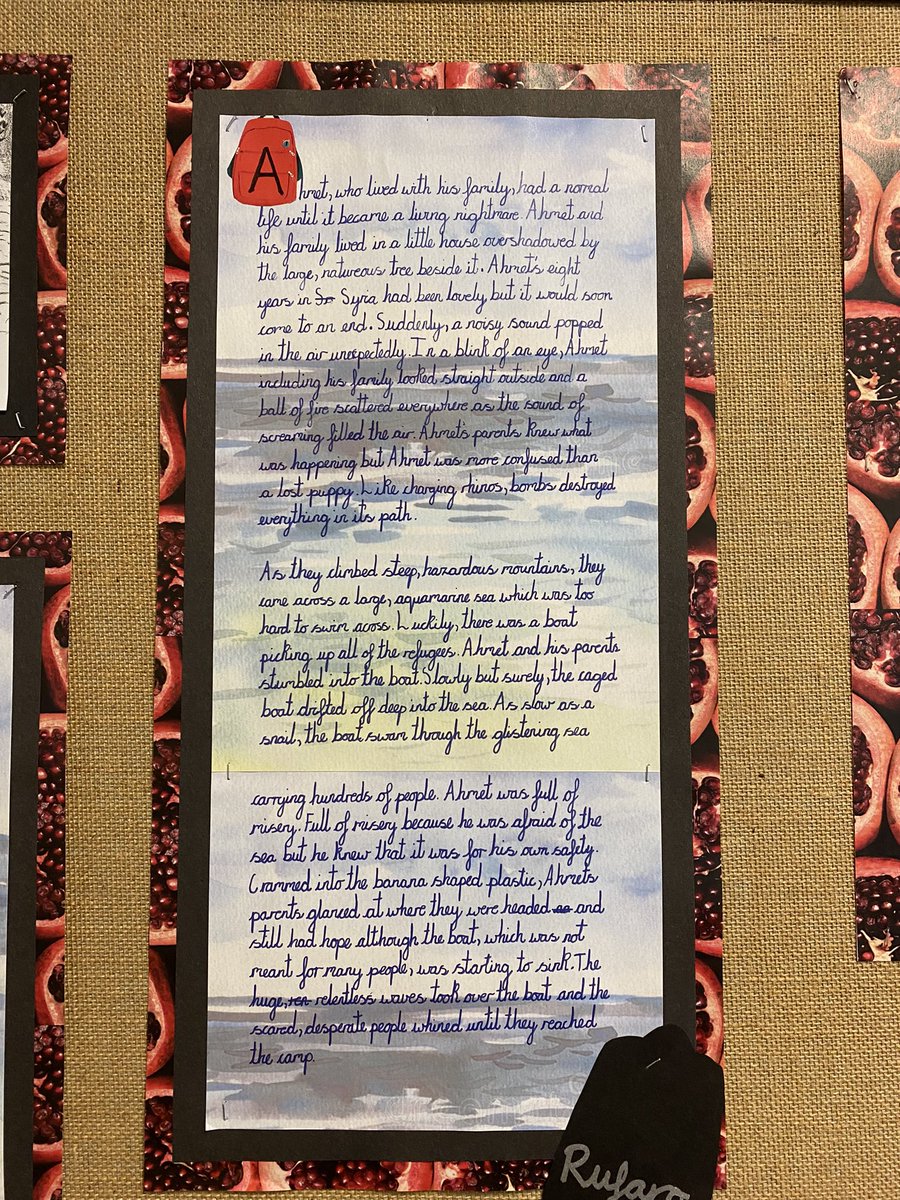 Ahmet, who lived with his family, had a normal
life until it became a living nightmare. Ahmet and
his family lived in a little house overshadowed by
the large, natureous tree beside it. Ahmet's eight
years in Syria had been lovely but it would soon
come to an end. Suddenly, a noisy sound popped
in the air unexpectedly. In a blink of an eye, Ahmet
including his family looked straight outside and a
ball of fire scattered everywhere as the sound of
screaming filled the air. Ahmet's parents knew what
was happening but Ahmet was more confused than
a lost puppy. Like charging rhinos, bombs destroyed
everything in its path.
As they climbed steep, hazardous mountains, they
came across a large, aquamarine sea which was too
hard to swim across. Luckily, there was a boat
picking up all of the refugees. Ahmet and his parents
stumbled into the boat. Slowly but surely, the caged
boat drifted off deep into the sea. As slow as a
snail, the boat swam through the glistening sea
carrying hundreds of people. Ahmet was full of
misery. Full of misery because he was afraid of the
sea but he knew that it was for his own safety.
Crammed into the banana shaped plastic, Ahmets
parents glanced at where they were headed and
still had hope although the boat, which was not
meant for many people, was starting to sink. The
huge, relentless waves took over the boat and the
scared, desperate people whined until they reached
the camp.